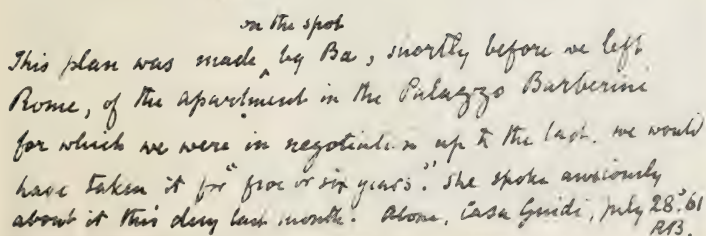 on the spot
This plan was made ^ by Ba, shortly before we left
Rome, of the apartment in the Palazzo Barberini
for which we were in negotiation up to the last. we would
have taken it for "five or six years". She spoke anxiously
about it this day last month. Alone, Casa Guidi, July 28. '61
RB.